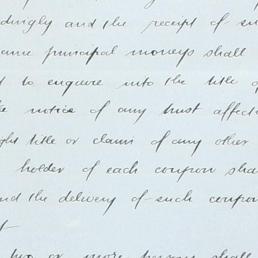 dingly and the receipt of su
same principal moneys shall
d to enquire into the title o
ke notice of any trust affecti
ght title or claim of any other
holder of each coupon sha
nd the delivery of such coupon
t
two or more persons shall